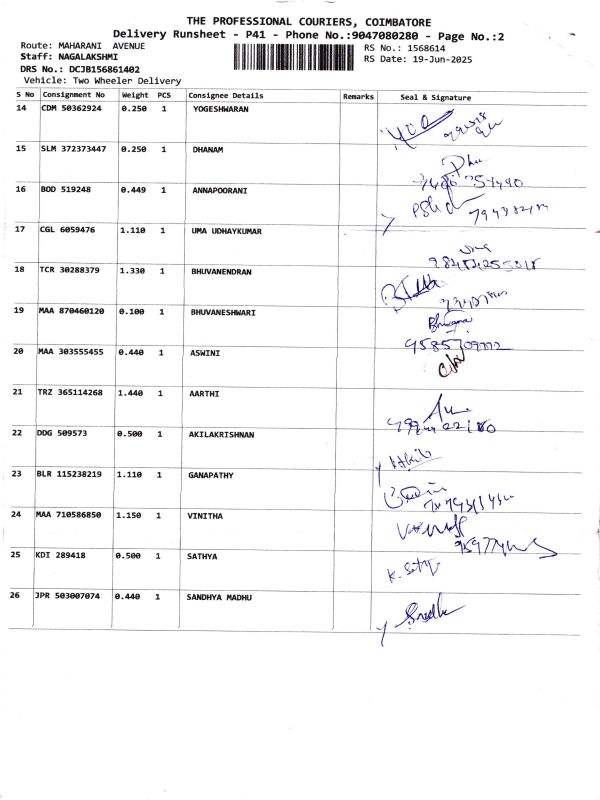 THE PROFESSIONAL COURIERS, COIMBATORE
Delivery Runsheet - P41 - Phone No.:9047080280 - Page No.:2
Route: MAHARANI AVENUE
RS No.: 1568614
Staff: NAGALAKSHMI
RS Date: 19-Jun-2025
DRS No.: DCJB156861402
Vehicle: Two Wheeler Delivery
S No Consignment No Weight PCS Consignee Details Remarks Seal & Signature
14 CDM 50362924 0.250 1 YOGESHWARAN
15 SLM 372373447 0.250 1 DHANAM
16 BOD 519248 0.449 1 ANNAPOORANI
17 CGL 6059476 1.110 1 UMA UDHAYKUMAR
18 TCR 30288379 1.330 1 BHUVANENDRAN
19 MAA 870460120 0.100 1 BHUVANESHWARI
20 MAA 303555455 0.440 1 ASWINI
21 TRZ 365114268 1.440 1 AARTHI
22 DDG 509573 0.500 1 AKILAKRISHNAN
23 BLR 115238219 1.110 1 GANAPATHY
24 MAA 710586850 1.150 1 VINITHA
25 KDI 289418 0.500 1 SATHYA
26 JPR 503007074 0.440 1 SANDHYA MADHU